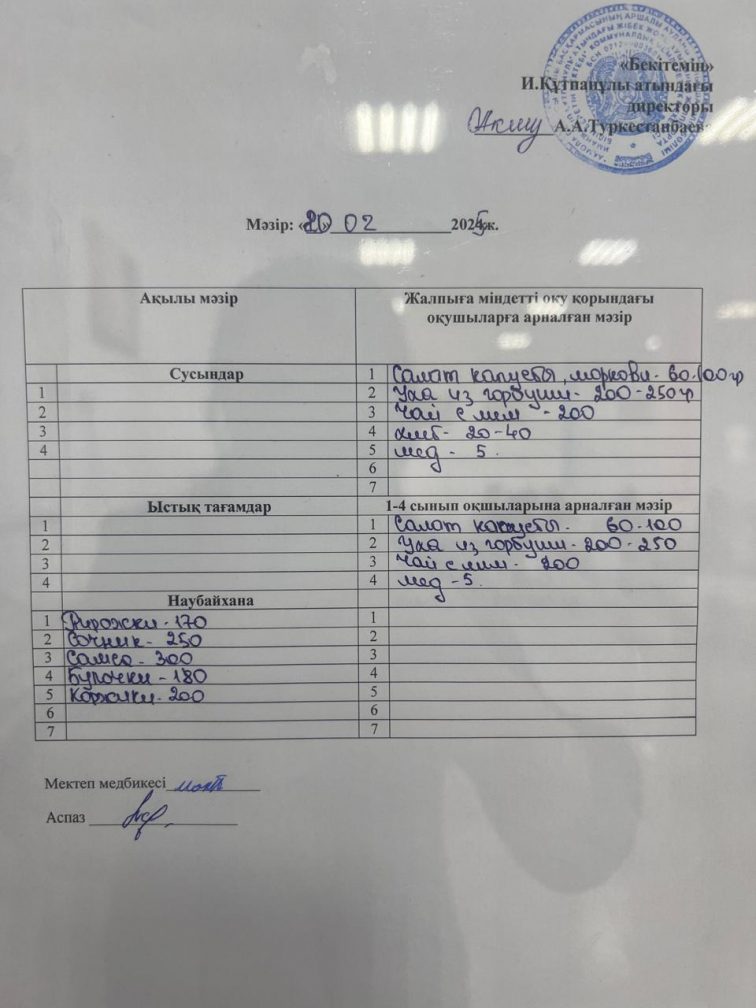 «Бекітемін»
И.Құтпанұлы атындағы
директоры
А.А.Туркестанбаев
Мәзір: «20» 02 2025ж.
Ақылы мәзір
Жалпыға міндетті оқу қорындағы
оқушыларға арналған мәзір
Сусындар
1 Салат капусты, моркови - 60-100гр
1
2 Уха из горбуши - 200-250гр
2
3 Чай с лим - 200
3
4 хлеб - 20-40
4
5 мед - 5.
6
7
Ыстық тағамдар
1-4 сынып оқшыларына арналған мәзір
1
1 Салат капусты - 60-100
2
2 Уха из горбуши - 200-250
3
3 Чай с лим - 200
4
4 мед - 5.
Наубайхана
1 Пирожки - 170
1
2 Сочник - 250
2
3 Самса - 300
3
4 Булочки - 180
4
5 Коржики - 200
5
6
6
7
7
Мектеп медбикесі
Аспаз